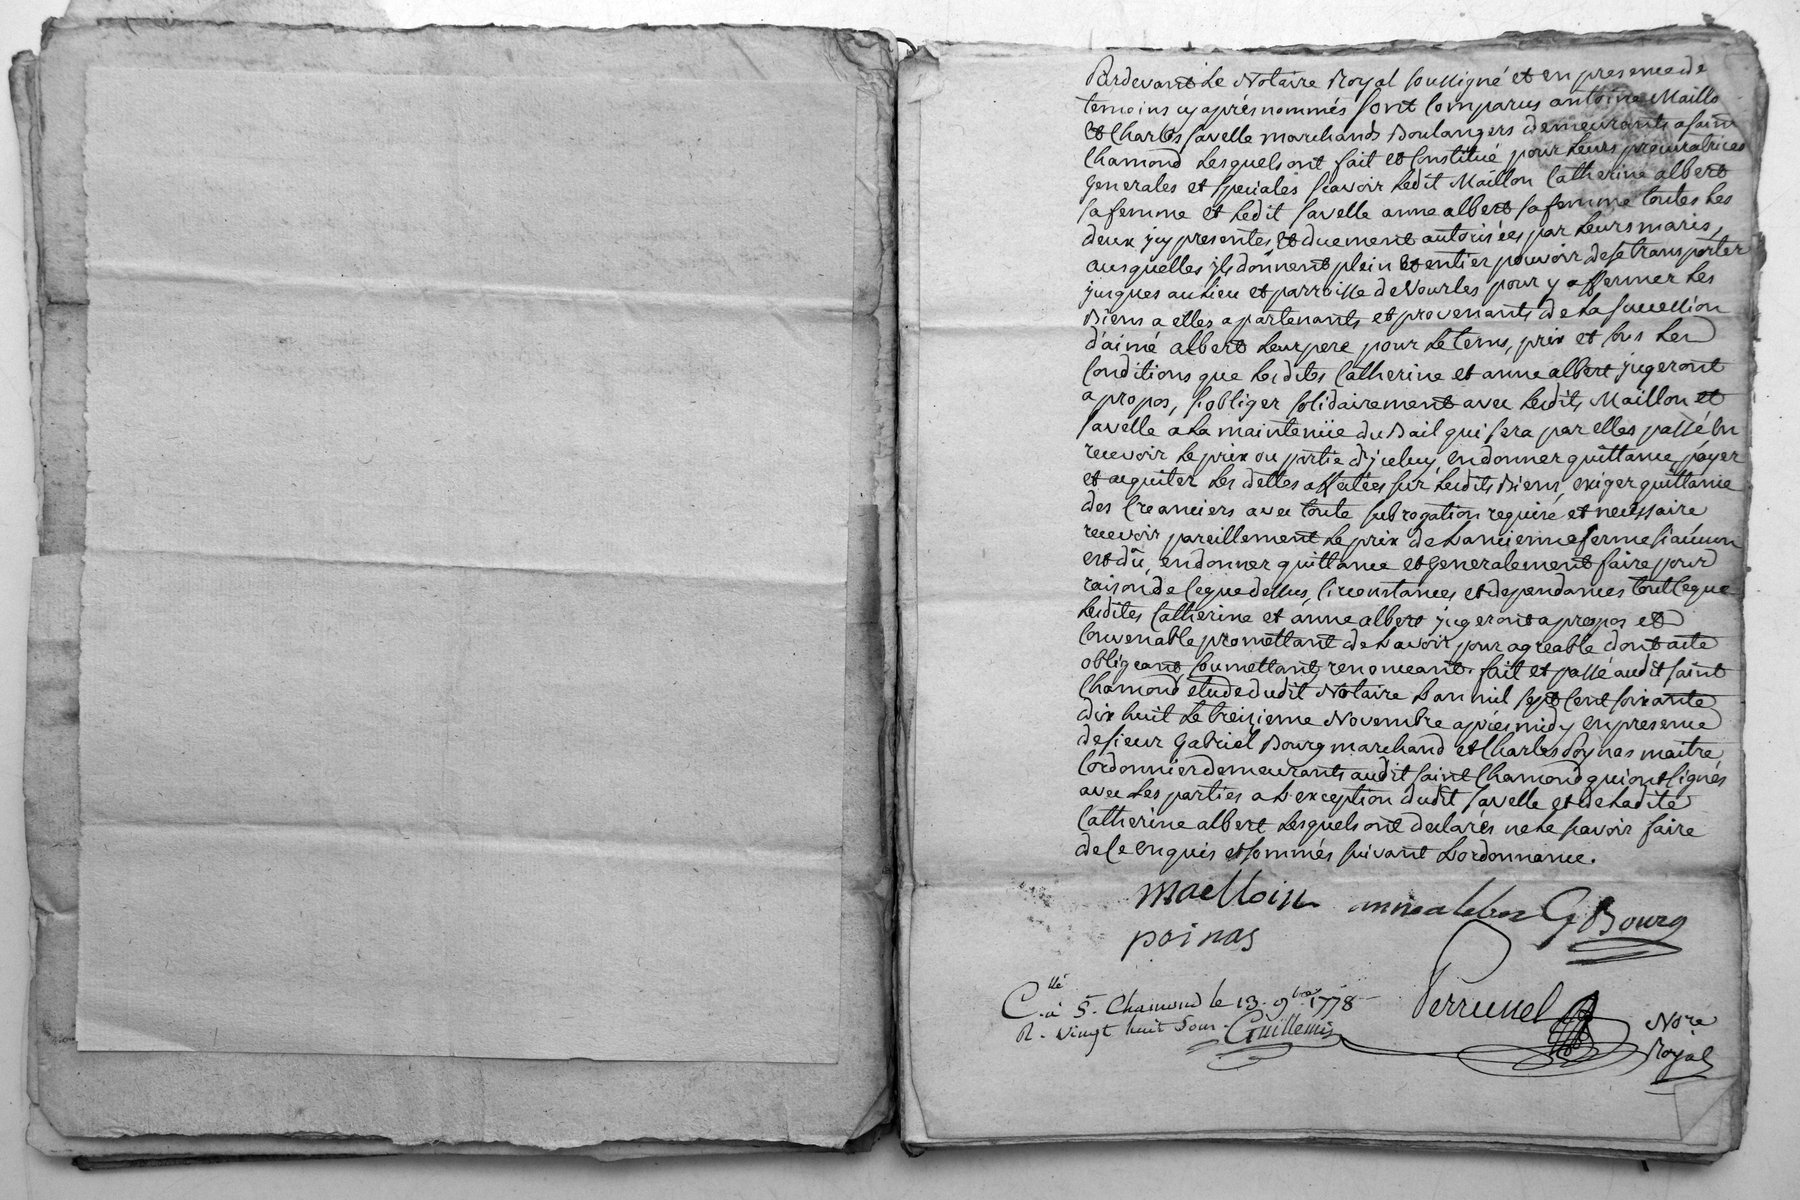 Pardevant Le Notaire Royal soussigné et en presence de
temoins cy après nommés sont Comparus antoine Maillo
et Charles favelle marchands Boulangers demeurants a saint
Chamond Lesquels ont fait et Constitué pour Leurs procuratrices
Generales et speciales scavoir Ledit Maillon Catherine albert
sa femme et Ledit favelle anne albert sa femme toutes Les
deux jcy presentes, et duement autorisées par Leurs maris,
ausquelles jls donnent plein et entier pouvoir de se transporter
jusques au Lieu et parroisse de Vourles pour y affermer Les
Biens a elles apartenants et provenants de La succession
d'aimé albert Leur pere pour Le tems, prix et sous Les
Conditions que Lesdites Catherine et anne albert jugeront
a propos, s'obliger solidairement avec Lesdits Maillon et
favelle a La maintenüe du Bail qui sera par elles passé En
recevoir Le prix ou partie d'jceluy, en donner quittance, payer
et acquiter Les dettes affectées sur Lesdits Biens, exiger quittance
des Creanciers avec toute subrogation requise et necessaire
recevoir pareillement Le prix de L'ancienne ferme si aucun
est dû, en donner quittance et Generalement faire pour
raison de Ce que dessus, Circonstances et dependances tout Ce que
Lesdites Catherine et anne albert jugeront a propos et
Convenable promettant de L'avoir pour agreable dont acte
obligeant, soumettant, renonceant. fait et passé audit saint
Chamond étude dudit Notaire L'an mil sept Cent soixante
dix huit Le treizieme Novembre après midy en presence
de sieur Gabriel Bourg marchand et Charles Poynas maitre
Cordonnier demeurants audit saint Chamond qui ont signés
avec Les parties a L'exception dudit favelle et de Ladite
Catherine albert Lesquels ont declarés ne Le scavoir faire
de Ce Enquis et sommés suivant L'ordonnance.
maelloin anne alber G Bourg
poinas
C.llé à St. Chamond le 13. 9bre 1778
R. vingt huit sous. Guillemin
Perrussel Nore
Royal